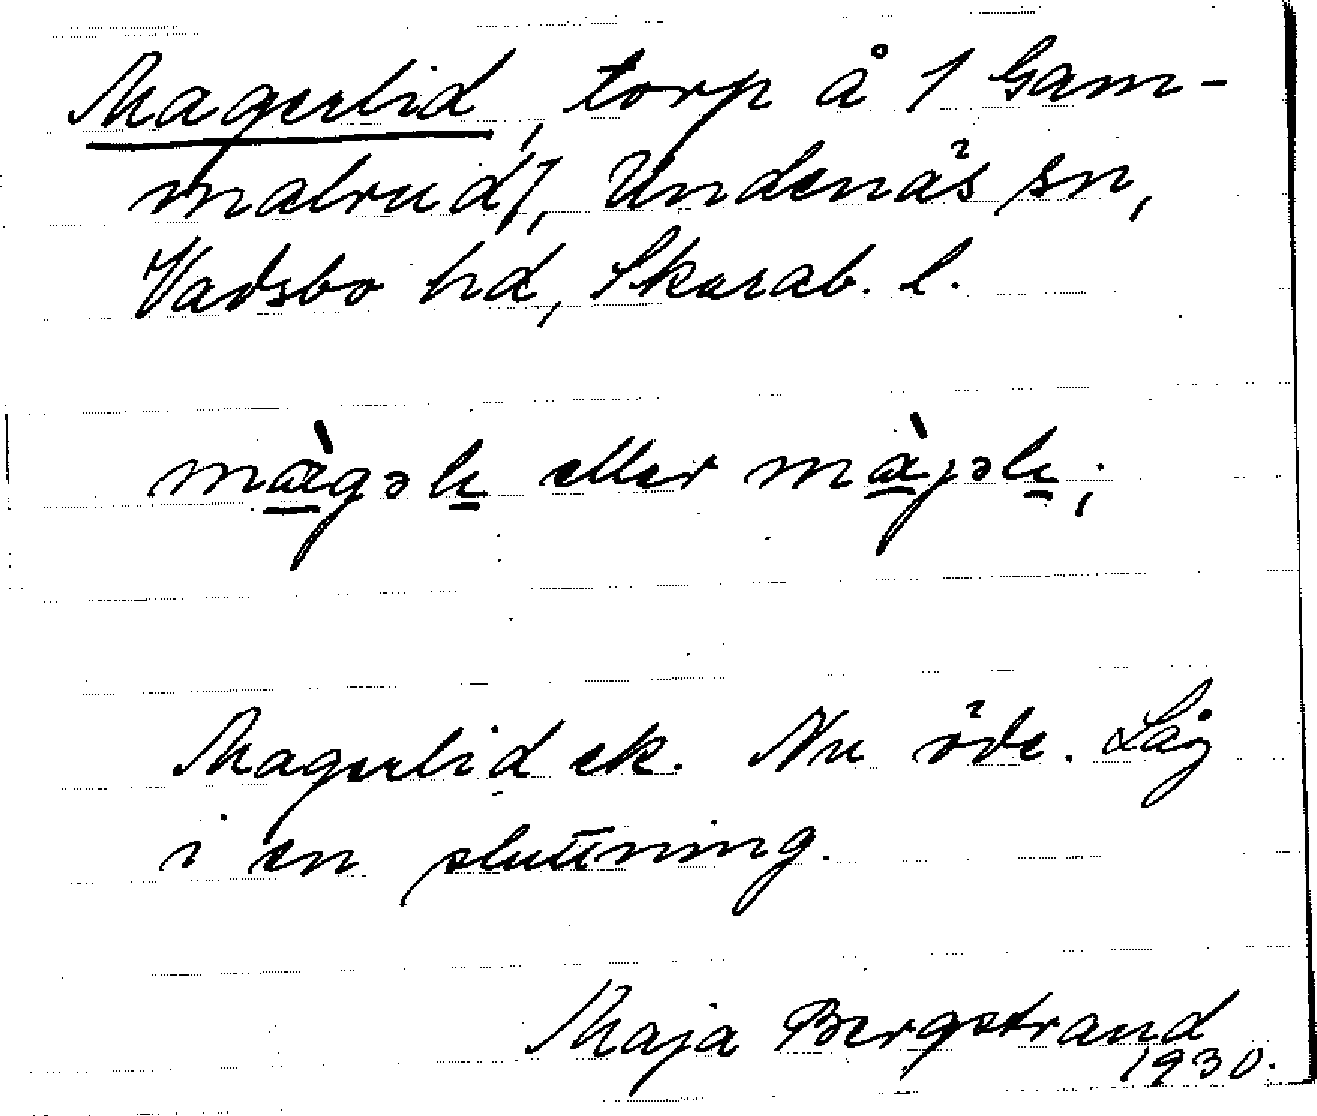 Magerlid, torp å 1 Gam-
malrud 1, Undenäs sn,
Vadsbo hd, Skarab. l.
mä̀gəlı eller mä̀jəlı;
Magerlid ek. Nu öde. Låg
i en sluttning.
Maja Bergstrand
1930.